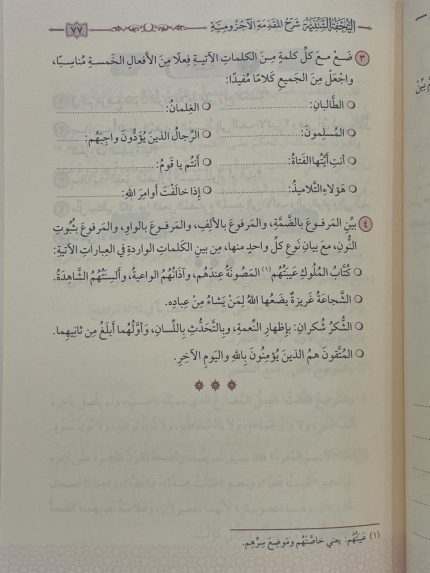 التحفة السنية شرح المقدمة الآجرومية ٧٧
٣ ضَعْ مَعَ كلِّ كلمةٍ مِنَ الكلماتِ الآتيةِ فِعلًا مِنَ الأفعالِ الخَمسةِ مُنَاسِبًا،
واجْعَلْ مِنَ الجَميعِ كَلامًا مُفيدًا:
الطَّالبانِ: ........ الغِلمانُ: ........
المُسلِمونَ: ........ الرِّجالُ الذينَ يُؤَدُّونَ واجِبَهُم: ........
أنتِ أيَّتُها الفَتاةُ: ........ أَنتُم يا قَومُ: ........
هَؤلاءِ التَّلاميذُ: ........ إذا خالَفْتَ أوامِرَ اللهِ: ........
٤ بيِّنِ المَرفوعَ بالضَّمَّةِ، والمَرفوعَ بالألِفِ، والمَرفوعَ بالواوِ، والمَرفوعَ بثُبُوتِ
النُّونِ، مَعَ بيانِ نَوعِ كلِّ واحِدٍ منها، مِن بينِ الكلماتِ الواردةِ في العِباراتِ الآتيةِ:
كُتَّابُ المُلوكِ عَيبَتُهُم(١) المَصُونَةُ عِندَهُم، وآذانُهُم الواعيةُ، وألسِنَتُهُم الشَّاهِدَةُ.
الشَّجاعَةُ غَريزةٌ يَضَعُها اللهُ لِمَنْ يَشَاءُ مِن عِبادِهِ.
الشُّكرُ شُكرانِ: بإظهارِ النِّعمةِ، وبالتَّحَدُّثِ باللِّسانِ، وَأوَّلُهُما أبلَغُ مِن ثانِيهِما.
المُتَّقُونَ هُمُ الذينَ يُؤْمِنُونَ بِاللهِ واليَومِ الآخِرِ.
(١) عَيبَتُهُم: يعني خاصَّتَهُم ومَوضِعَ سِرِّهِم.